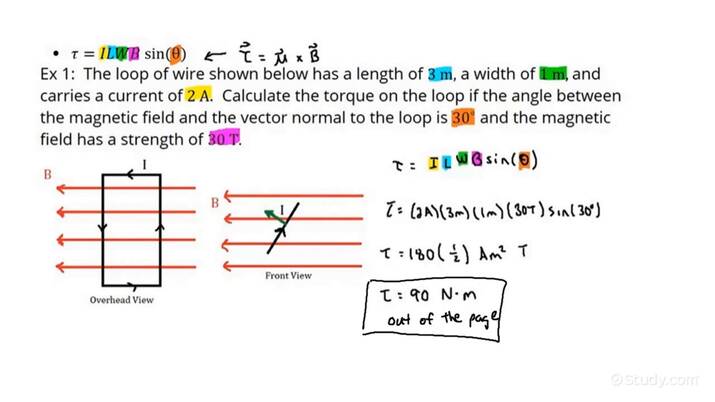 • τ = ILWB sin(θ) ← τ⃗ = μ⃗ × B⃗
Ex 1: The loop of wire shown below has a length of 3 m, a width of 1 m, and
carries a current of 2 A. Calculate the torque on the loop if the angle between
the magnetic field and the vector normal to the loop is 30° and the magnetic
field has a strength of 30 T.
B
I
Overhead View
B
I
Front View
τ = ILWB sin(θ)
τ = (2A)(3m)(1m)(30T) sin(30°)
τ = 180(1/2) Am² T
τ = 90 N·m
out of the page
@Study.com